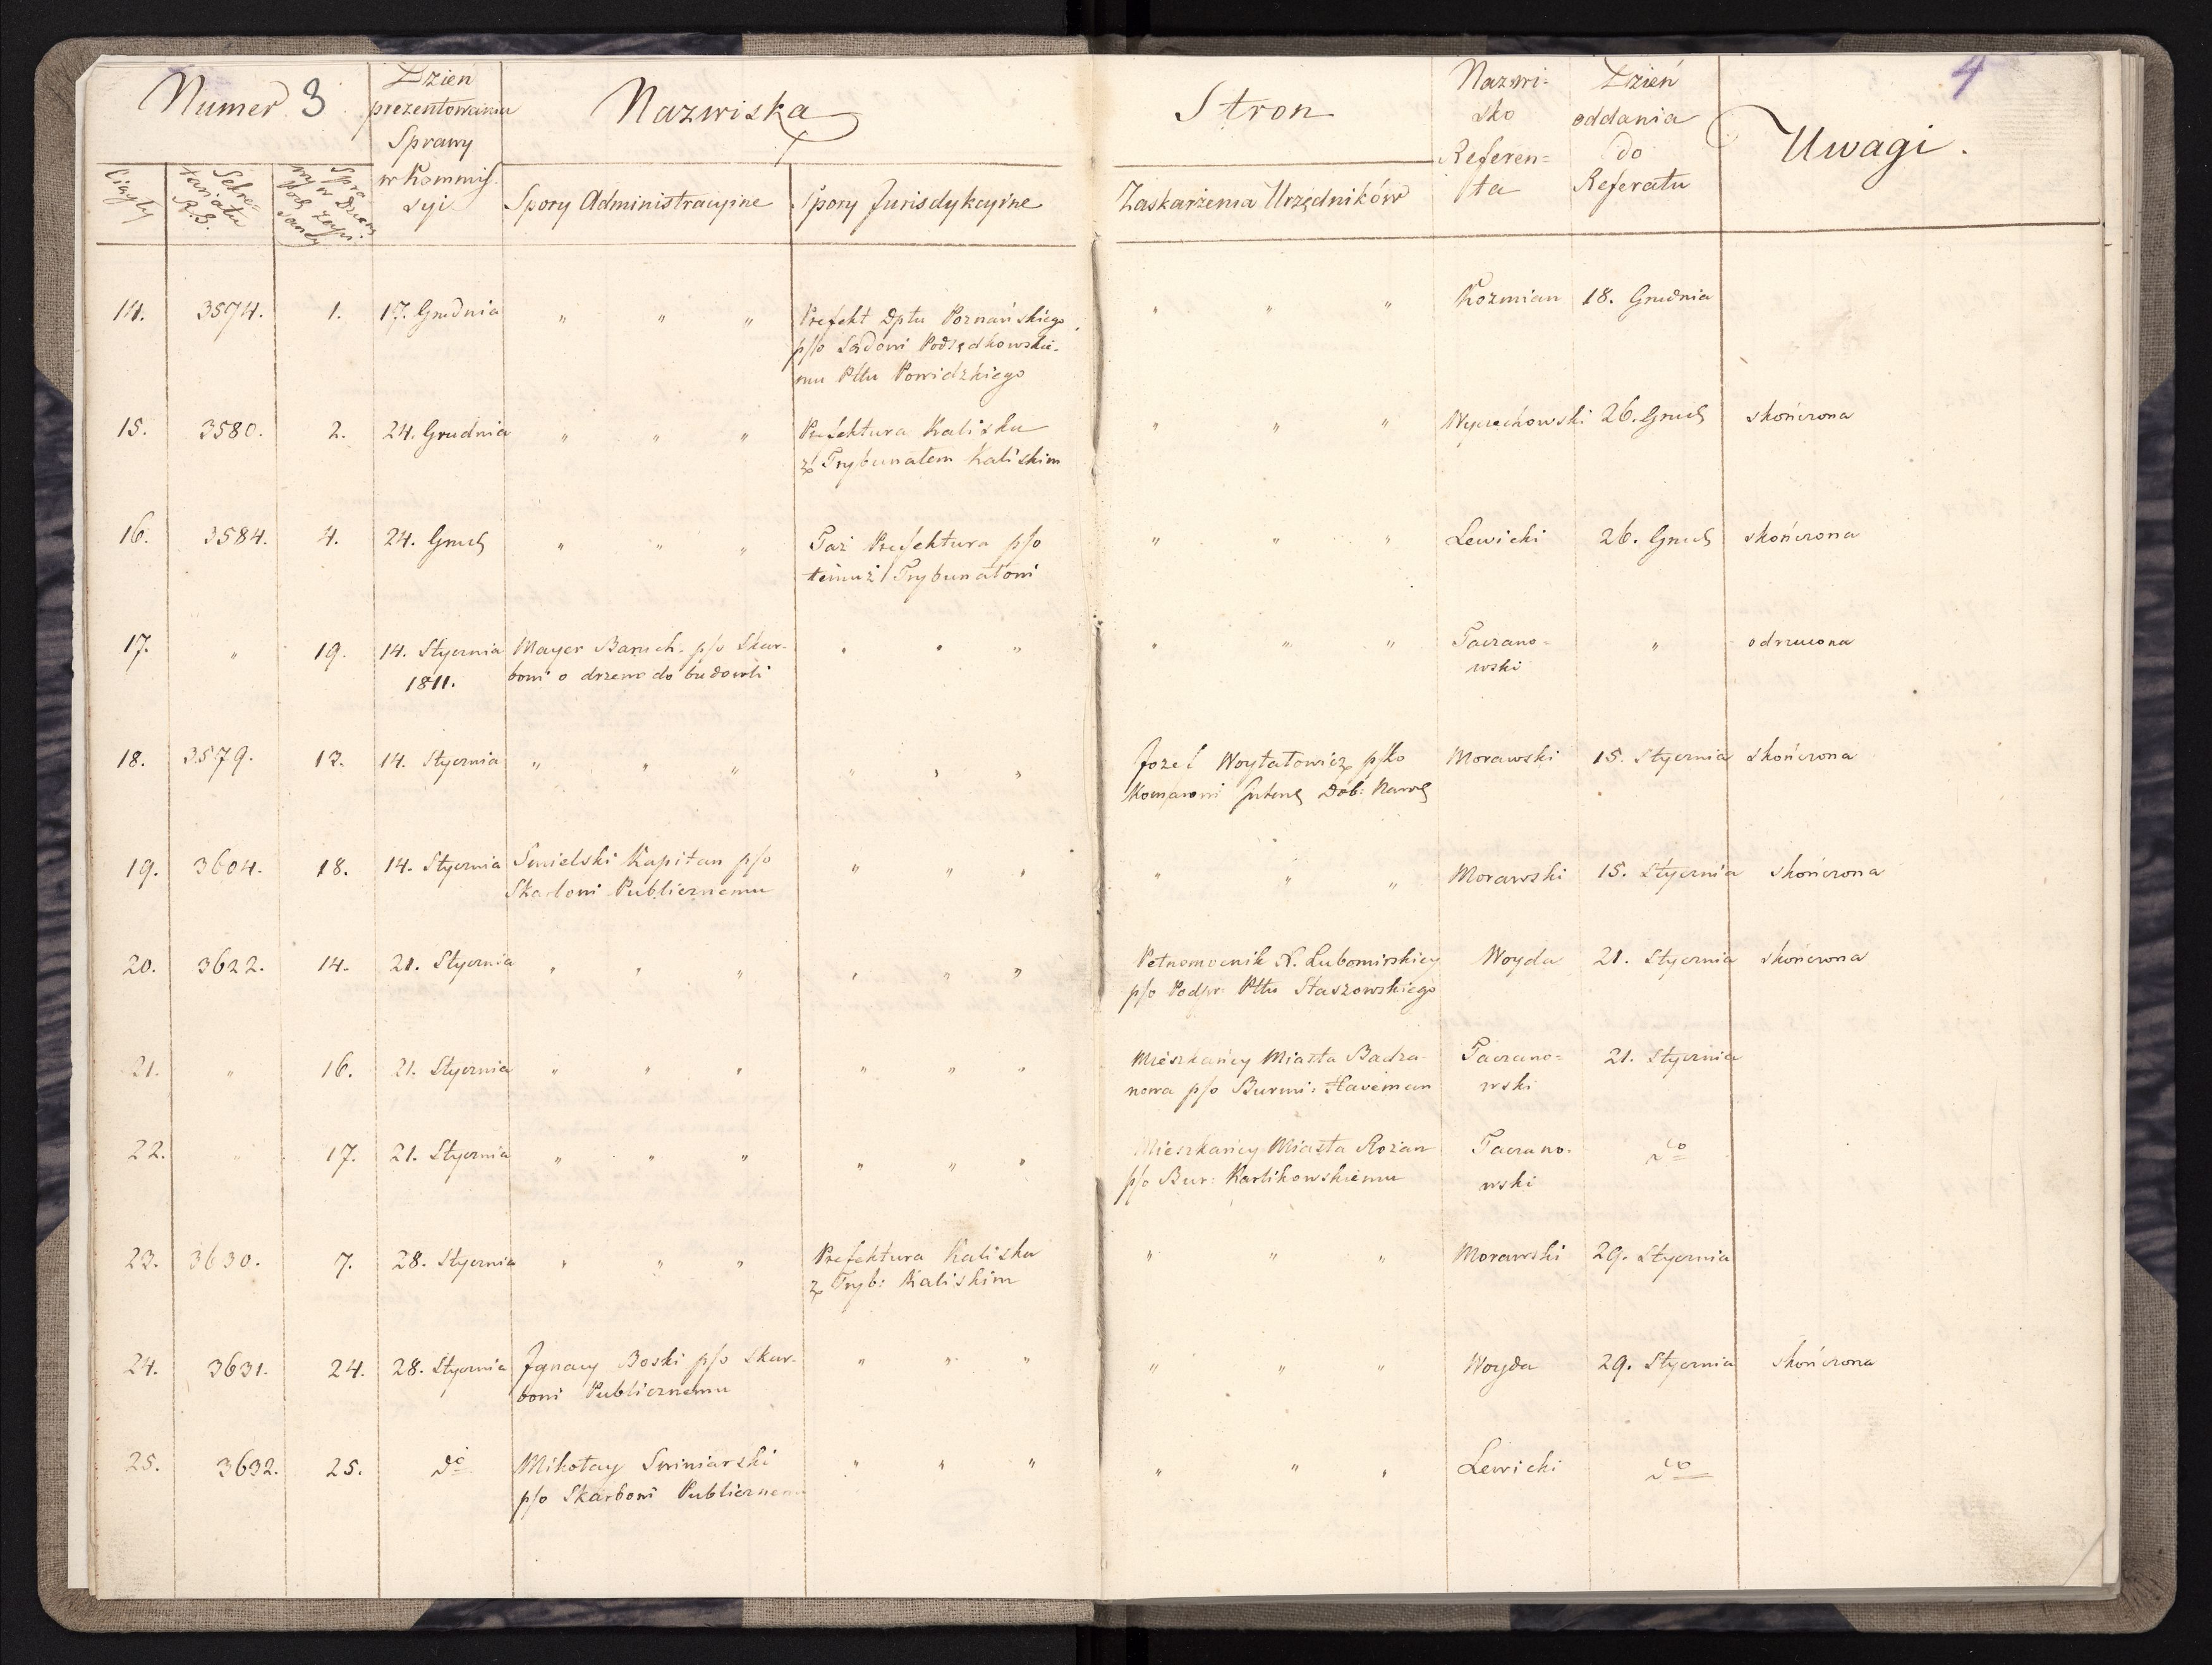 Numer 3
Dzień prezentowania Sprawy w Kommissyi
Nazwiska Stron
Nazwisko Referenta
Dzień oddania do Referatu
Uwagi.
4
Ciągły
Sekretariatu R. S.
Spory Administracyine
Spory Jurisdykcyine
Zaskarżenia Urzędników
14. 3574. 1. 17. Grudnia " " " Prefekt Dptu Poznańskiego " " " Kozmian 18. Grudnia
p/o Sądowi Podsędkowskie-
mu Pttu Powidzkiego
15. 3580. 2. 24. Grudnia " " " Prefektura Kaliska " " " Wyczechowski 26. Grud skończona
z Trybunałem Kaliskim
16. 3584. 4. 24. Grud " " " Taż Prefektura p/o " " " Lewicki 26. Grud skończona
temuż Trybunałowi
17. " 19. 14. Stycznia Mayer Baruch p/o Skar- " " " " " " Taczano= " odrzucona
1811. bowi o drzewo do budowli wski
18. 3579. 13. 14. Stycznia " " " " " " Jozef Woytatowicz p/ko Morawski 15. Stycznia skończona
Dób: Narod
19. 3604. 18. 14. Stycznia Smielski Kapitan p/o " " " " " " Morawski 15. Stycznia skończona
Skarbowi Publicznemu
20. 3622. 14. 21. Stycznia " " " " " " Pełnomocnik X. Lubomirskiey Woyda 21. Stycznia skończona
p/o Podpr: Pttu Staszowskiego
21. " 16. 21. Stycznia " " " " " " Mieszkańcy Miasta Badza- Taczano= 21. Stycznia
nowa p/o Burmi: Haveman wski
22. " 17. 21. Stycznia " " " " " " Mieszkańcy Miasta Rożan Taczano- do
p/o Bur: Karlikowskiemu wski
23. 3630. 7. 28. Stycznia " " " Prefektura Kaliska " " " Morawski 29. Stycznia
z Tryb: Kaliskim
24. 3631. 24. 28. Stycznia Jgnacy Boski p/o Skar- " " " " " " Woyda 29. Stycznia skończona
bowi Publicznemu
25. 3632. 25. do Mikołay Swiniarski " " " " " " Lewicki do
p/o Skarbowi Publicznemu